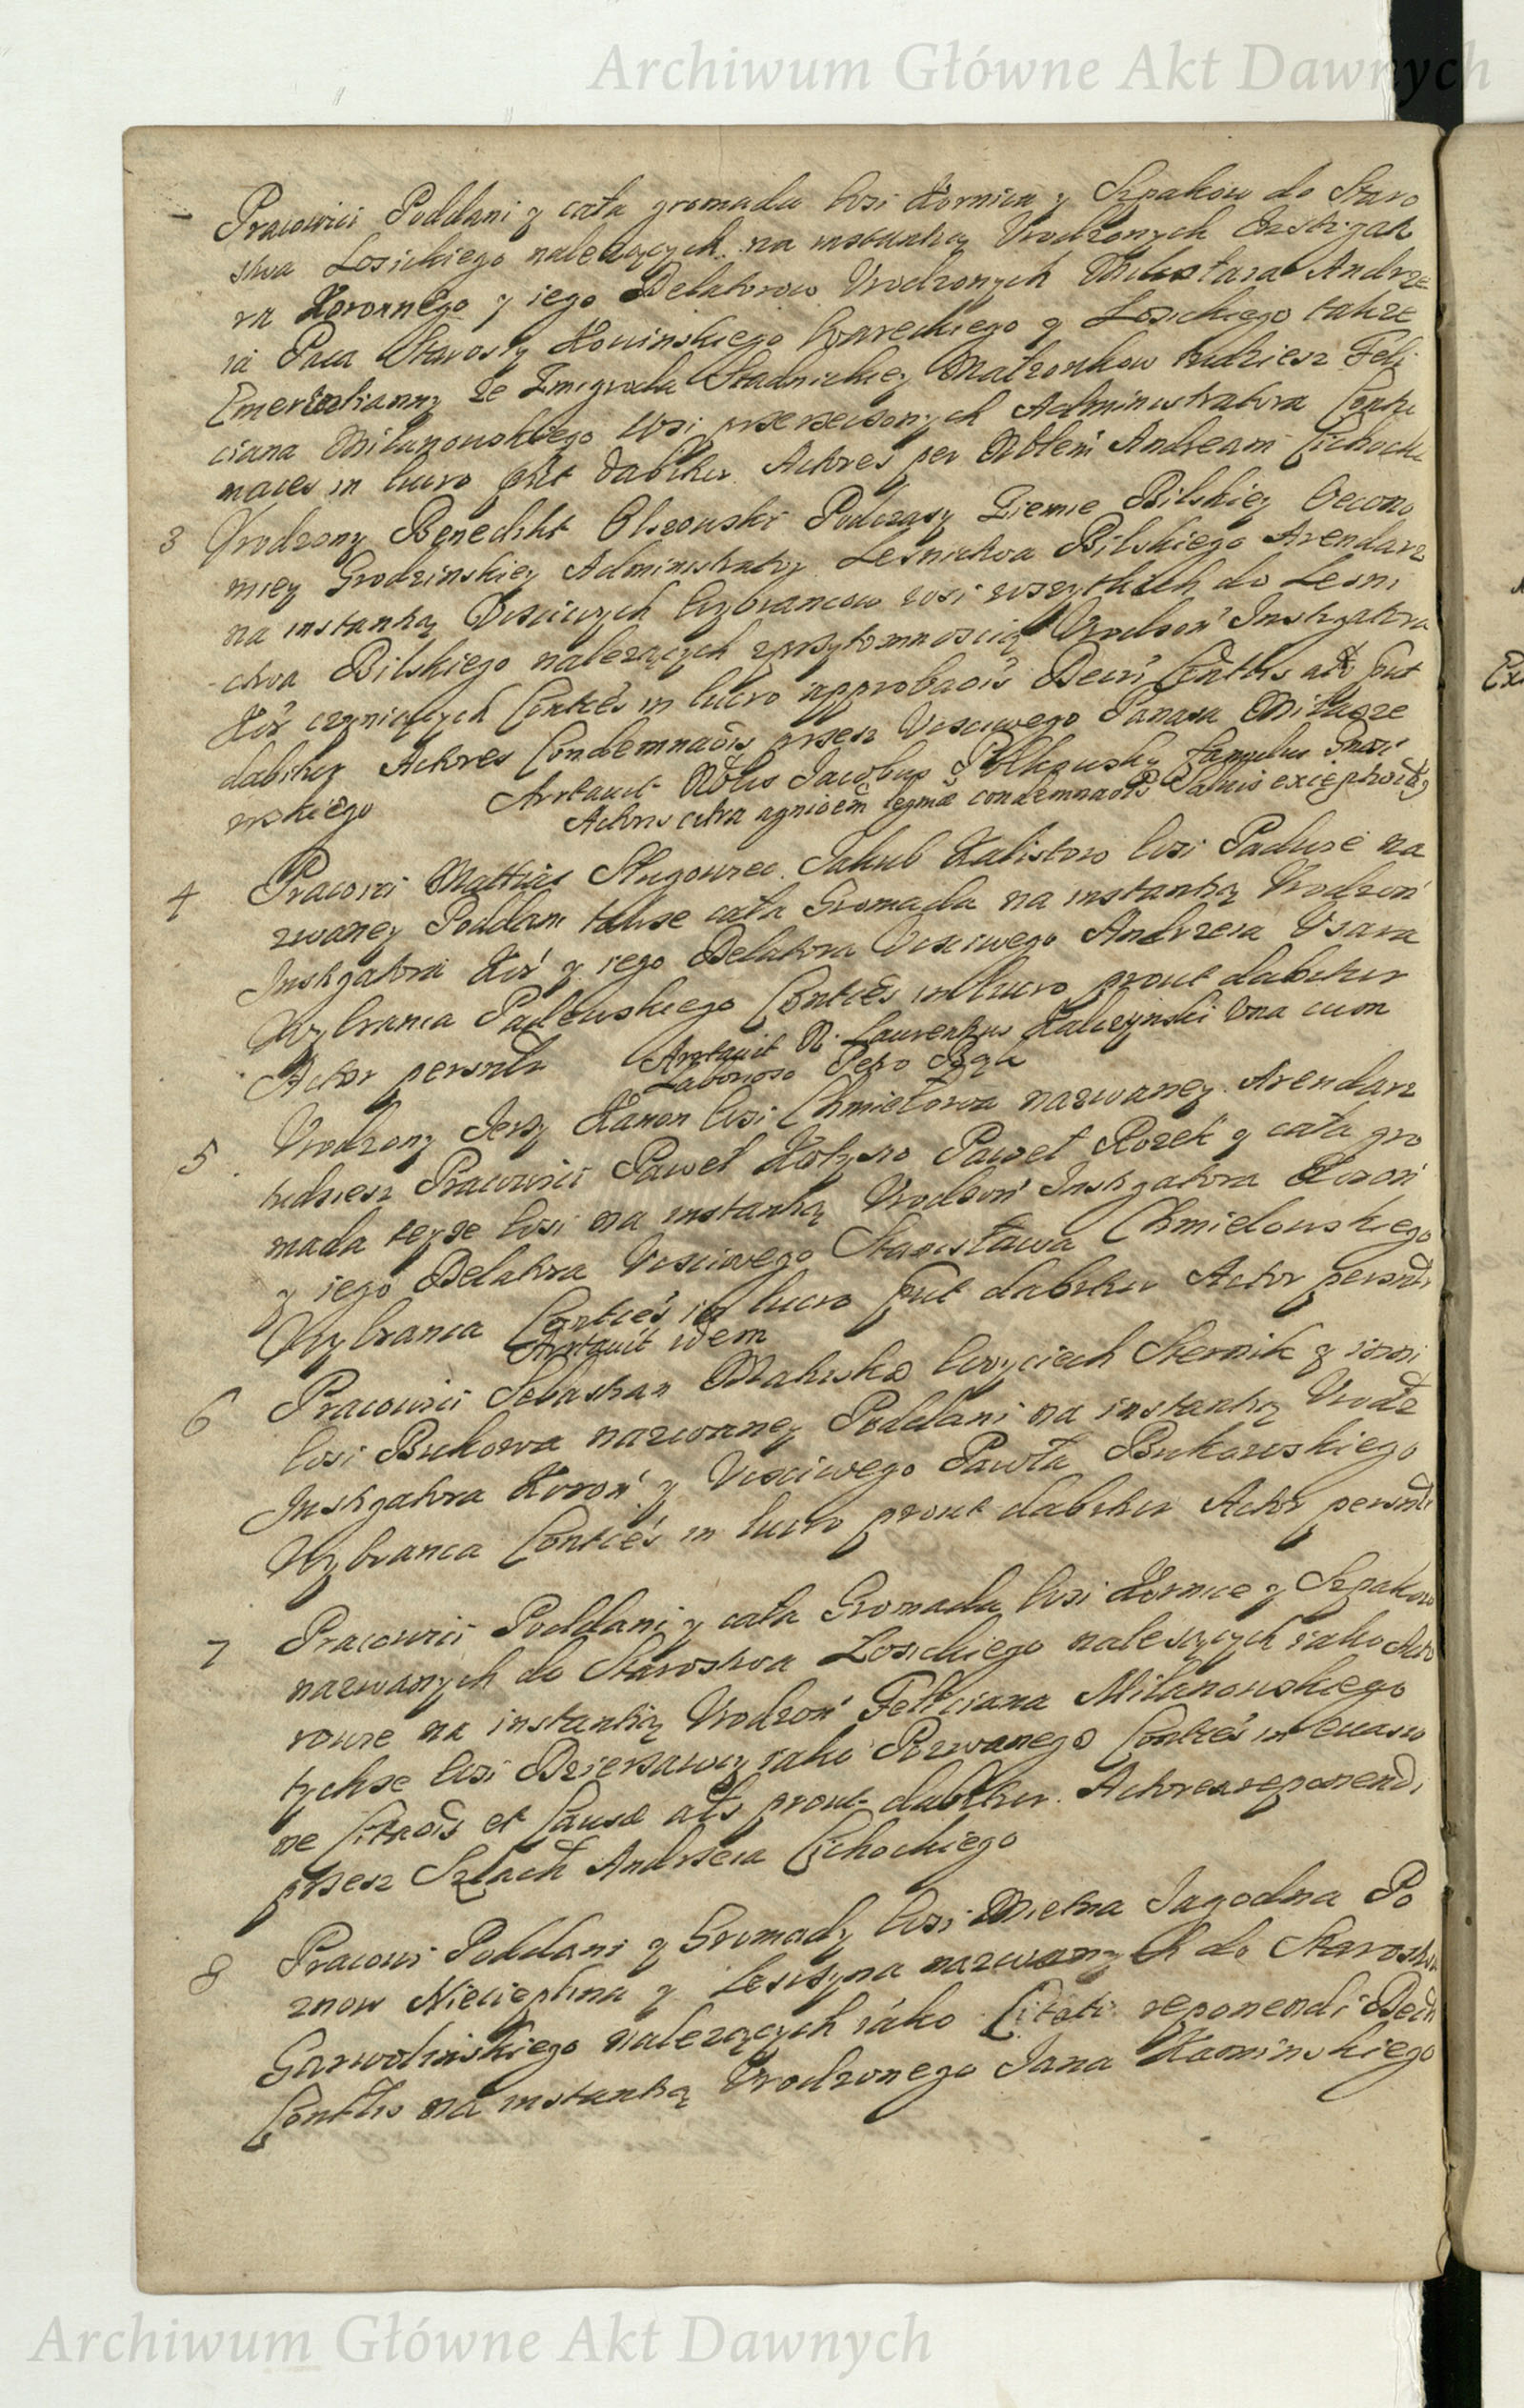 Archiwum Główne Akt Dawnych
Pracowici Poddani y cała gromada wsi Kornica y Szpaków do Staro
stwa Losickiego należących na instantią Vrodzonych Instigato
ra Koronnego y iego Delatorow Vrodzonych Andrze
ia Paca Starosty Kowinskiego Wareckiego y Losickiego także
ze Zmigroda Stadnickiey Małżonkow tudziesz Feli
ciana Milanowskiego wsi przerzeczonych Administratora
in lucro put dabitur. Actores per Noblem Andream Cichocki
3 Vrodzony Benedikt Olszowski Podczaszy Ziemie Bilskiey Oecono
miey Grodzinskiey Administrator Lesnictwa Bilskiego Arendarz
na instantią Vcściwych Wybrancow wsi wszytkich do Lesni
ctwa Bilskiego należących zprzytomnoscią Vrodzon Instygatora
Kor czyniących Conties in lucro approbaois Decri Contlis als put
dabitur Actores Condemnaois przez Vcsciwego Panasa Milasze
wskiego Arrtavit Noblis Jacobus famulus
Actoris citra agnioem legmae condemnaois Salvis exceptioibq
4 Pracowi Matthias Jakub Kalistow wsi Padusze na
zwaney Poddani takze cała Gromada na instantią Vrodzon
Instigatora Kor y iego Delatora Vcsciwego Andrzeia
Wybranca Padewskiego Conties in lucro prout dabitur
Actor persnlr Arrtavit N. Laurentius Kalczynski vna cum
Laborioso Petro Bąk
5 Vrodzony Jerzy Kanon wsi Chmielowa nazwaney Arendarz
tudziesz Pracowici Paweł Paweł Rozek y cała gro
mada teyze wsi na instantią Vrodzon Instygatora Koron
y iego Delatora Vcsciwego Stanisława Chmielowskiego
Wybranca Conties in lucro put dabitur Actor persnlr
Arrtavit idem
6 Pracowici Sebastian Woyciech Sternik y inni
wsi Bukowa nazwaney Poddani na instantią Vrodz
Instygatora Koron y Vcsciwego Pawła Bukowskiego
Wybranca Conties in lucro prout dabitur Actor persnlr
7 Pracowici Poddani y cała Gromada wsi Kornice y Szpakow
nazwanych do Starostwa Losickiego należących iako Acto
rowie na instantią Vrodzon Feliciana Milanowskiego
tychze wsi Dzierzawcy iako Pozwanego Conties in euasio
ne Citaois et Causae als prout dabitur. Actores reponendi
przez Szlach Andrzeia Cichockiego
8 Pracowi Poddani y Gromady wsi Mietna Jagodna Po
znow Niecieplina y Leszczyna nazwanych do Starostwa
Garwolinskiego należących iáko Citati reponendi Decri
Contlis na instantią Vrodzonego Jana Kaminskiego
Archiwum Główne Akt Dawnych